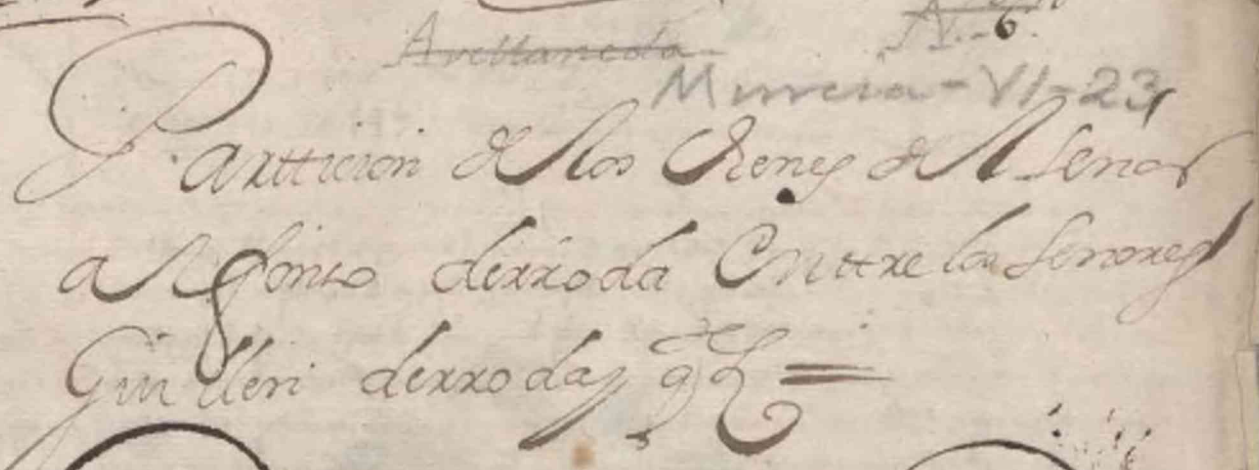 Avellaneda
N. 6
Murcia - VI - 23
Parttision de los Vienes del Señor
alfonso derroda Enttre los Señores
Guilleri derroda y